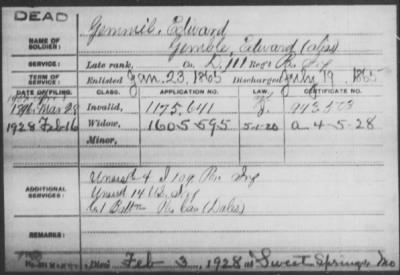 DEAD
NAME OF SOLDIER: Gemmil, Edward
Gemble, Edward (alias)
SERVICE: Late rank, Co. D, 111 Reg't Pa. Inf
TERM OF SERVICE: Enlisted Jan. 23, 1865 Discharged July 19, 1865
DATE OF FILING. CLASS. APPLICATION NO. LAW. CERTIFICATE NO.
Mar 28 Invalid, 1175,641
1928 Feb 16 Widow, 1605595 5-1-20 a-4-5-28
Minor,
ADDITIONAL SERVICES: Unassd 109 Pa. Inf
Unassd 14 U.S. Inf
Pa. Cav (alias)
REMARKS:
Died Feb 3, 1928 at Sweet Springs Mo